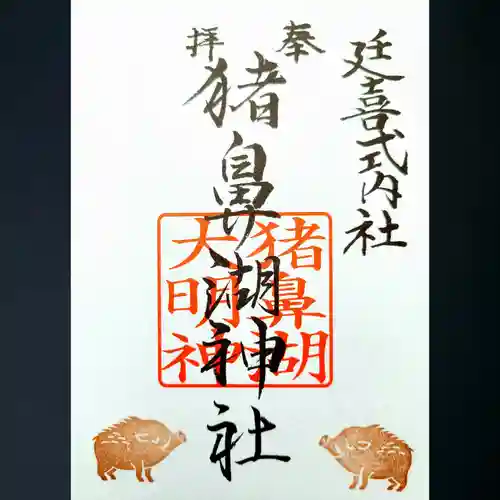 奉拝
延喜式内社
猪鼻湖神社
猪鼻湖
大明神